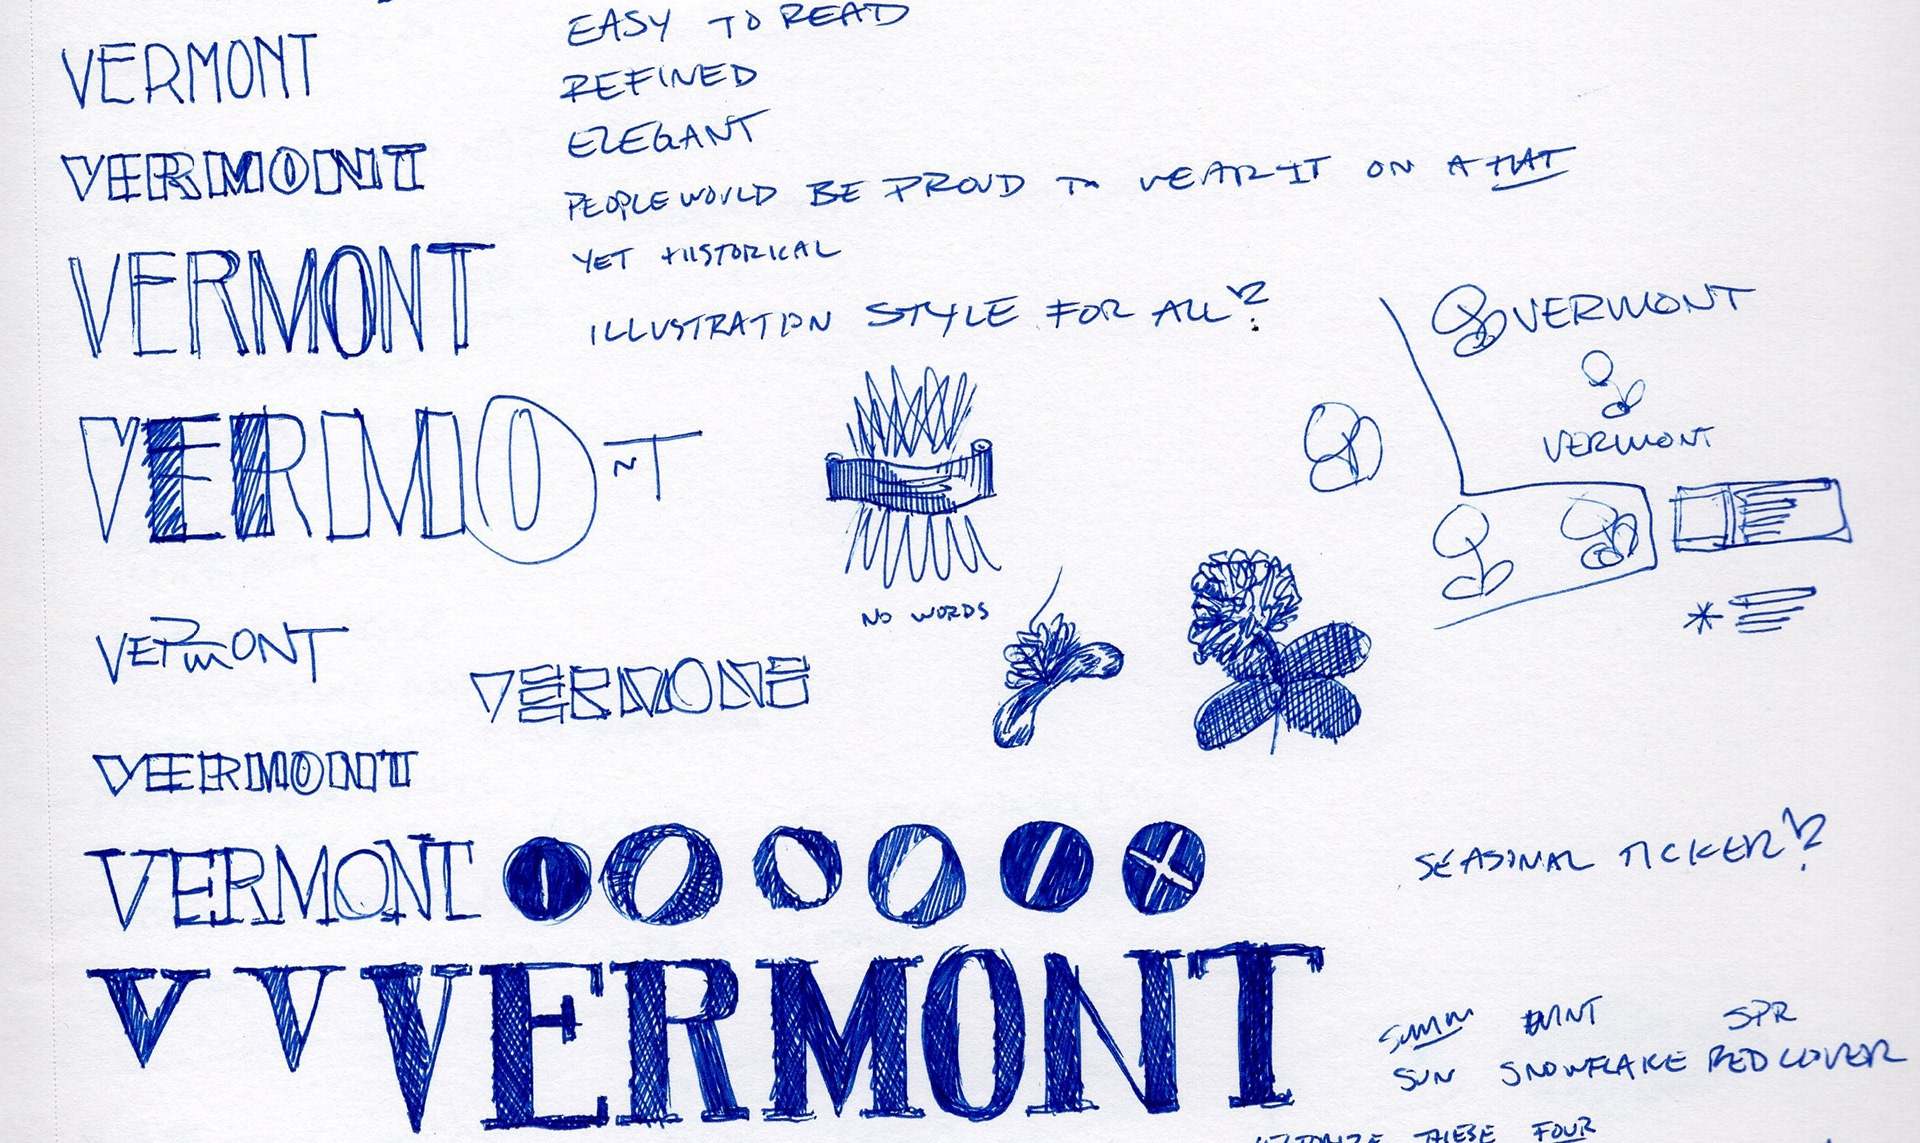 VERMONT
VERMONT
VERMONT
VERMONT
VERMONT
VERMONT
VERMONT
VERMONT
V V VERMONT
EASY TO READ
REFINED
ELEGANT
PEOPLE WOULD BE PROUD TO WEAR IT ON A HAT
YET HISTORICAL
ILLUSTRATION STYLE FOR ALL?
NO WORDS
VERMONT
VERMONT
SEASONAL TICKER?
SUMM WINT SPR
SUN SNOWFLAKE RED CLOVER
THESE FOUR